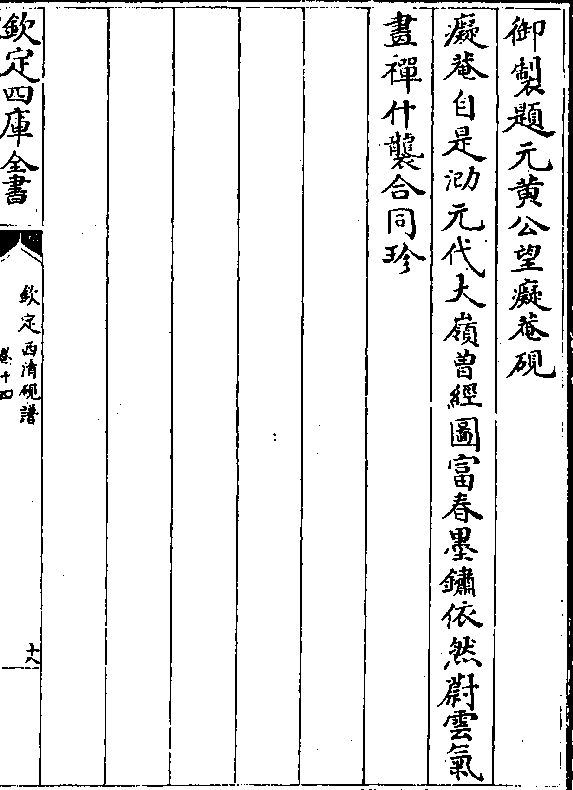 御製題元黄公望癡菴硯
癡菴自是泐元代大嶺曽經圖富春墨鏽依然蔚雲氣
畫禪什襲合同珍
欽定四庫全書
欽定西清硯譜
卷十四
十八